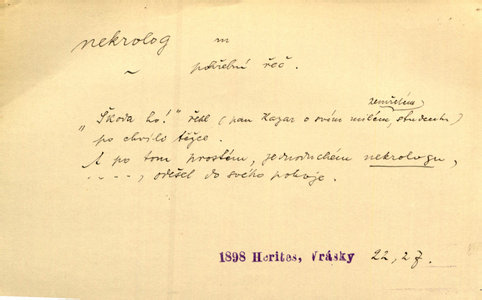 nekrolog m
~ pohřební řeč.
zemřelém
"Škoda ho!" řekl (pan Kazar o svém milém studentu)
po chvíli těžce.
A po tom prostém, jednoduchém nekrologu,
...., odešel do svého pokoje.
1898 Herites, Vrásky 22, 27.